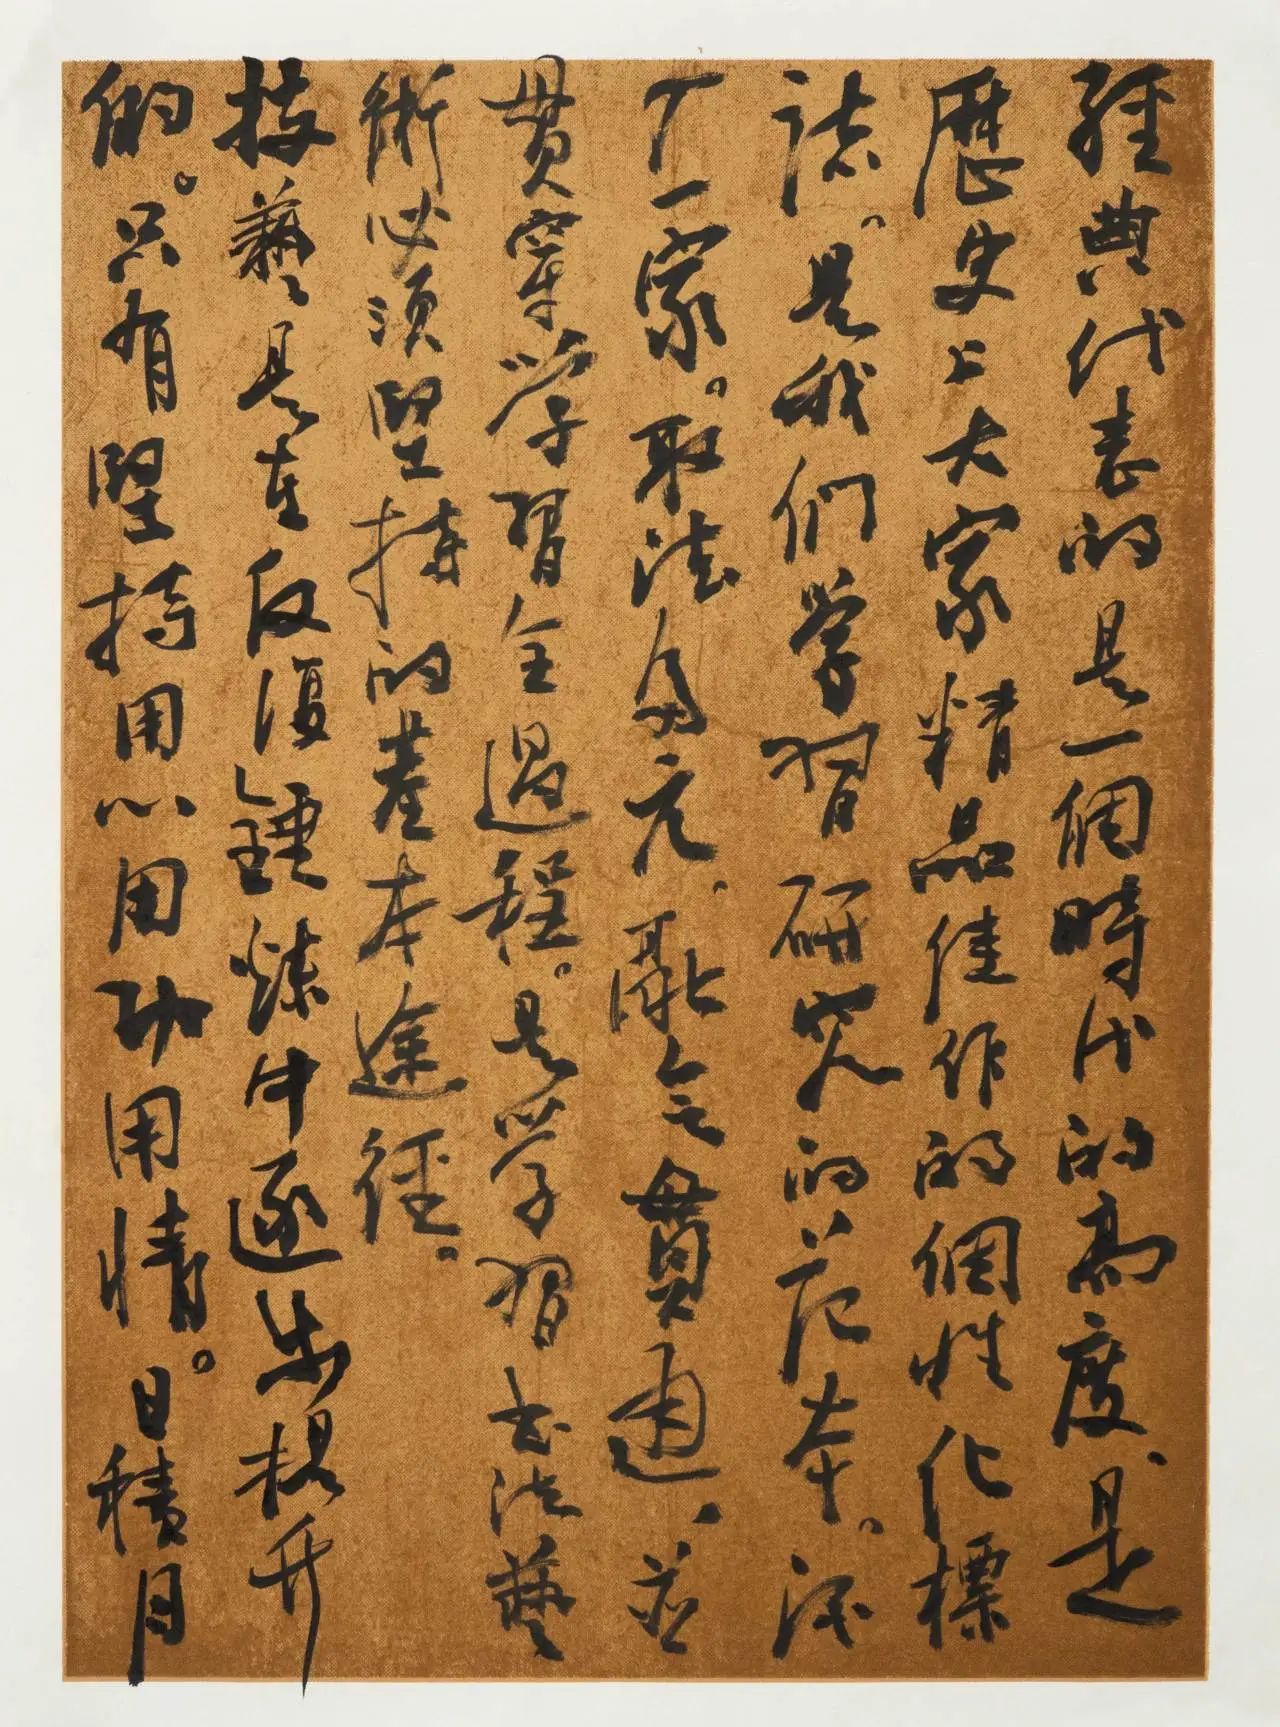 經典代表的是一個時代的高度、是
歷史上大家精品佳作的個性化標
誌。是我們學習研究的范本。深
厂一家。取法多元、融會貫通、並
貫穿學習全過程。是學習書法藝
術必須堅持的基本途徑。
技藝是在反復錘煉中逐步提升
的。只有堅持用心用功用情。日積月